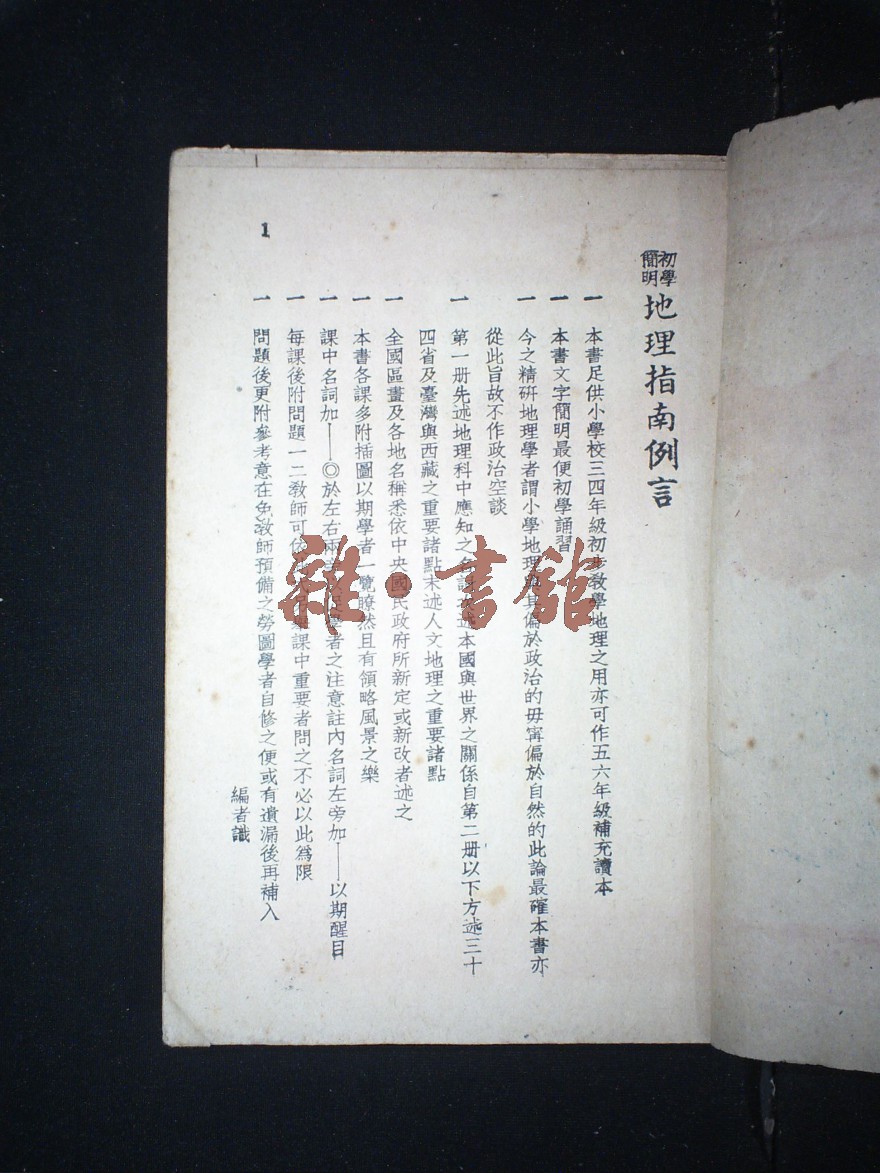 初學簡明 地理指南例言
一 本書足供小學校三四年級初步教學地理之用亦可作五六年級補充讀本
一 本書文字簡明最便初學誦習
一 今之精硏地理學者謂小學地理與其偏於政治的毋寧偏於自然的此論最確本書亦
從此旨故不作政治空談
一 第一册先述地理科中應知之 述本國與世界之關係自第二册以下方述三十
四省及臺灣與西藏之重要諸點末述人文地理之重要諸點
一 全國區畫及各地名稱悉依中央國民政府所新定或新改者述之
一 本書各課多附插圖以期學者一覽瞭然且有領略風景之樂
一 課中名詞加——◎於左右兩 以促學者之注意註內名詞左旁加——以期醒目
一 每課後附問題一二教師可依 課中重要者問之不必以此爲限
一 問題後更附參考意在免教師預備之勞圖學者自修之便或有遺漏後再補入
編者識
1
雜·書館